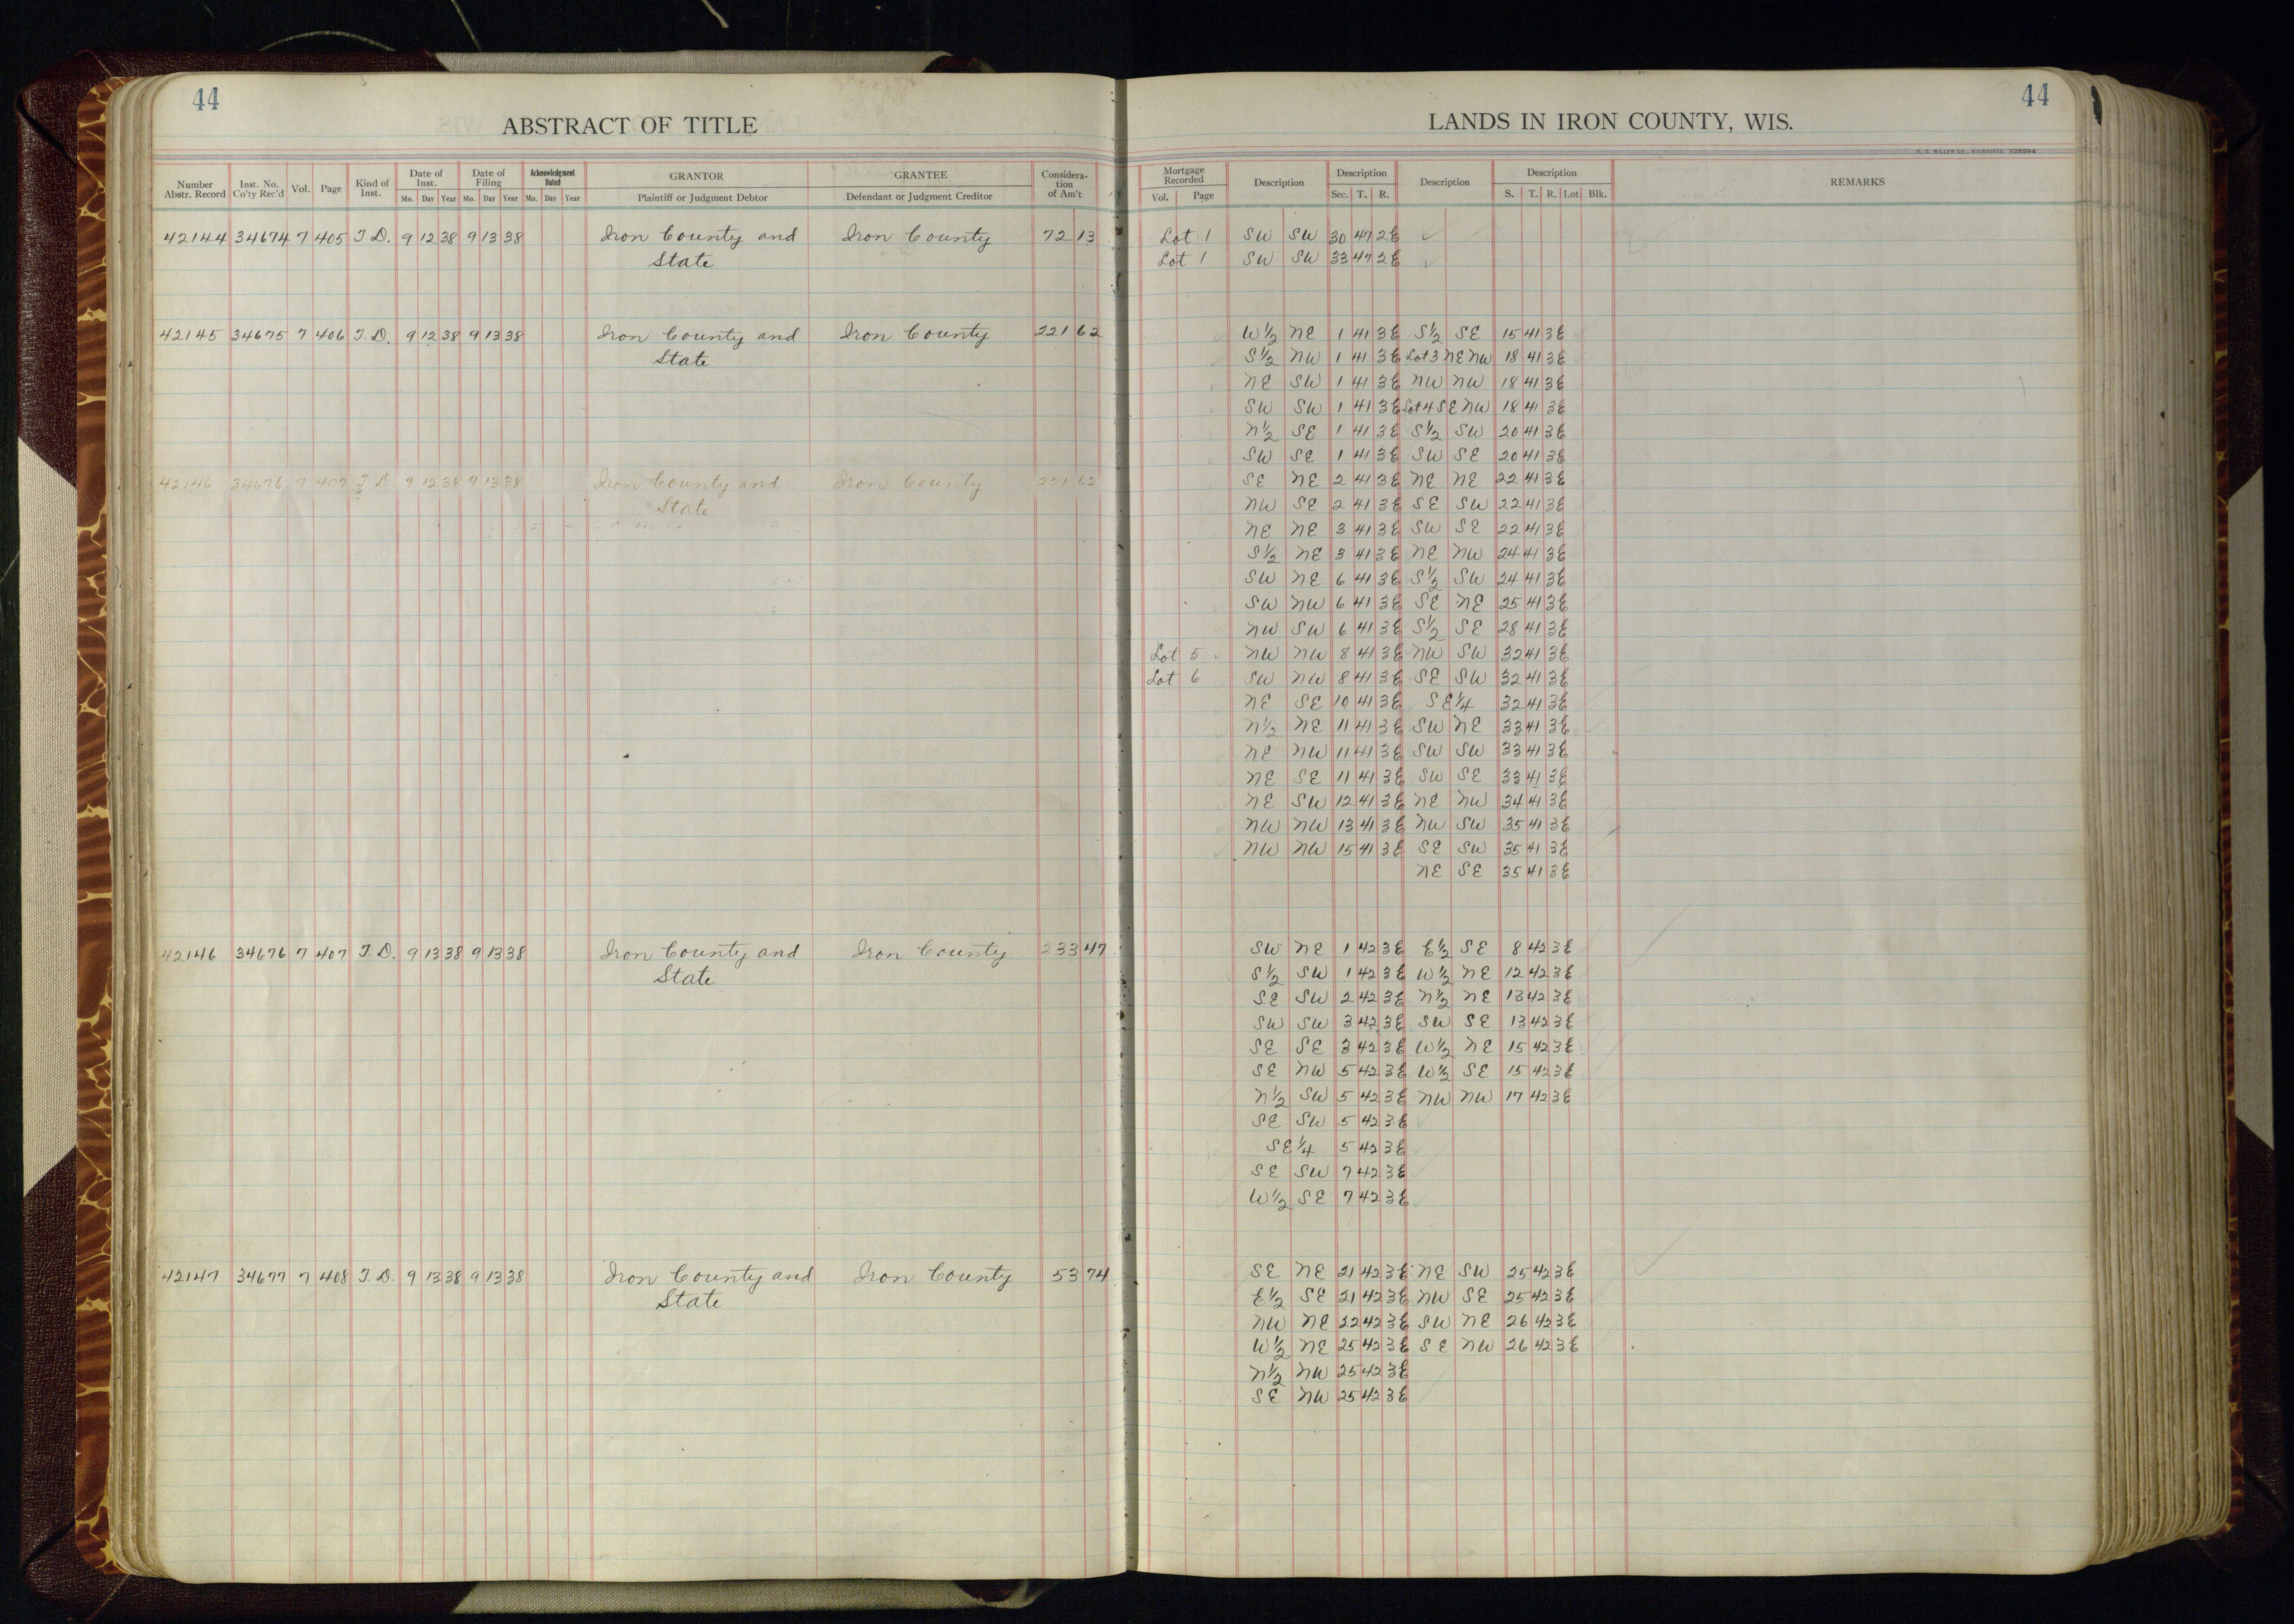 44
ABSTRACT OF TITLE
Number Abstr. Record | Inst. No. Co'ty Rec'd | Vol. | Page | Kind of Inst. | Date of Inst. Mo. Day Year | Date of Filing Mo. Day Year | Acknowledgment Dated Mo. Day Year | GRANTOR Plaintiff or Judgment Debtor | GRANTEE Defendant or Judgment Creditor | Considera-tion of Am't
42144 34674 7 405 T.D. 9 12 38 9 13 38 Iron County and Iron County 72 13
State
42145 34675 7 406 T.D. 9 12 38 9 13 38 Iron County and Iron County 221 62
State
42146 34676 7 407 T.D. 9 12 38 9 13 38 Iron County and Iron County 221 62
State
42146 34676 7 407 T.D. 9 13 38 9 13 38 Iron County and Iron County 233 47
State
42147 34677 7 408 T.D. 9 13 38 9 13 38 Iron County and Iron County 53 74
State
44
LANDS IN IRON COUNTY, WIS.
H. C. MILLER CO., MILWAUKEE Y28594
Mortgage Recorded Vol. Page | Description | Description Sec. T. R. | Description | Description S. T. R. Lot Blk. | REMARKS
Lot 1 SW SW 30 47 2E
Lot 1 SW SW 33 47 2E
W½ NE 1 41 3E S½ SE 15 41 3E
S½ NW 1 41 3E Lot 3 NE NW 18 41 3E
NE SW 1 41 3E NW NW 18 41 3E
SW SW 1 41 3E Lot 4 SE NW 18 41 3E
N½ SE 1 41 3E S½ SW 20 41 3E
SW SE 1 41 3E SW SE 20 41 3E
SE NE 2 41 3E NE NE 22 41 3E
NW SE 2 41 3E SE SW 22 41 3E
NE NE 3 41 3E SW SE 22 41 3E
S½ NE 3 41 3E NE NW 24 41 3E
SW NE 6 41 3E S½ SW 24 41 3E
SW NW 6 41 3E SE NE 25 41 3E
NW SW 6 41 3E S½ SE 28 41 3E
Lot 5 NW NW 8 41 3E NW SW 32 41 3E
Lot 6 SW NW 8 41 3E SE SW 32 41 3E
NE SE 10 41 3E SE¼ 32 41 3E
N½ NE 11 41 3E SW NE 33 41 3E
NE NW 11 41 3E SW SW 33 41 3E
NE SE 11 41 3E SW SE 33 41 3E
NE SW 12 41 3E NE NW 34 41 3E
NW NW 13 41 3E NW SW 35 41 3E
NW NW 15 41 3E SE SW 35 41 3E
NE SE 35 41 3E
SW NE 1 42 3E E½ SE 8 42 3E
S½ SW 1 42 3E W½ NE 12 42 3E
SE SW 2 42 3E N½ NE 13 42 3E
SW SW 3 42 3E SW SE 13 42 3E
SE SE 3 42 3E W½ NE 15 42 3E
SE NW 5 42 3E W½ SE 15 42 3E
N½ SW 5 42 3E NW NW 17 42 3E
SE SW 5 42 3E
SE¼ 5 42 3E
SE SW 7 42 3E
W½ SE 7 42 3E
SE NE 21 42 3E NE SW 25 42 3E
E½ SE 21 42 3E NW SE 25 42 3E
NW NE 22 42 3E SW NE 26 42 3E
W½ NE 25 42 3E SE NW 26 42 3E
N½ NW 25 42 3E
SE NW 25 42 3E